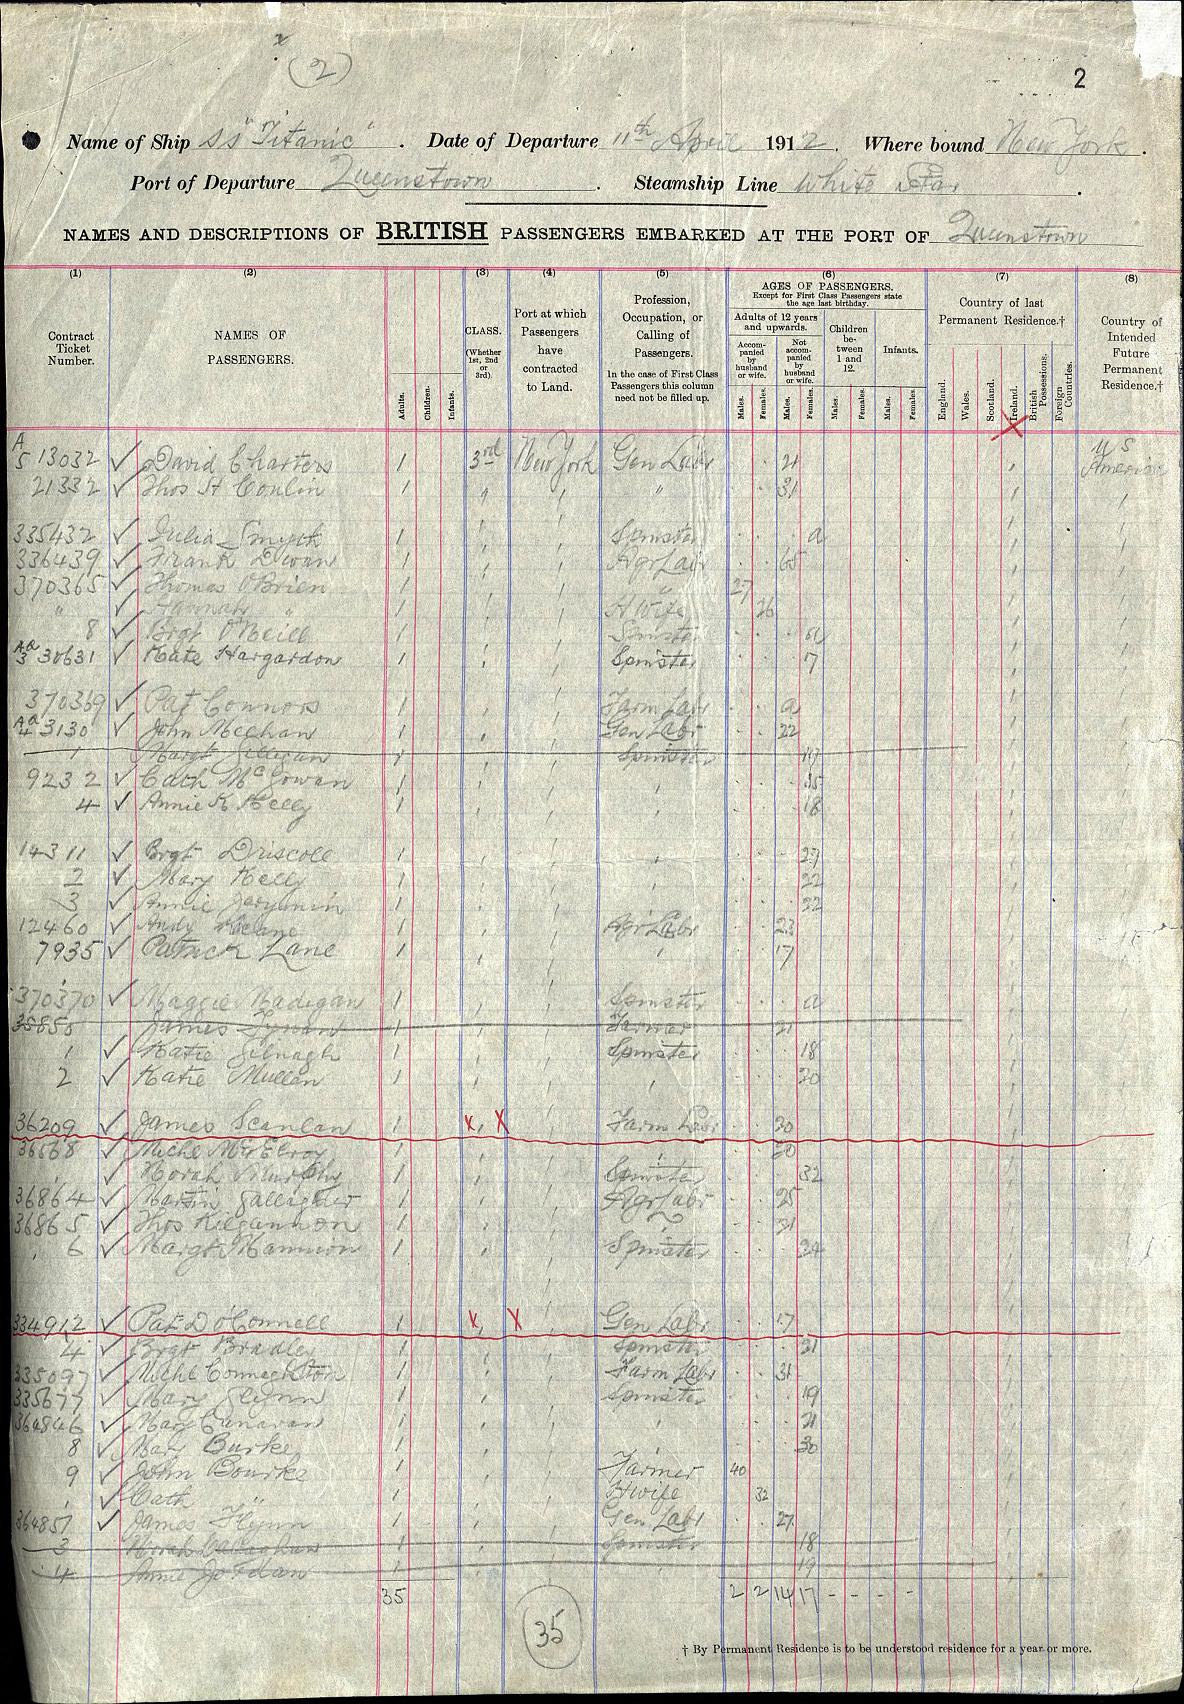 x
(2)
2
Name of Ship SS "Titanic". Date of Departure 11th April 1912. Where bound New York.
Port of Departure Queenstown. Steamship Line White Star.
NAMES AND DESCRIPTIONS OF BRITISH PASSENGERS EMBARKED AT THE PORT OF Queenstown
(1) (2) (3) (4) (5) (6) (7) (8)
Contract Ticket Number.
NAMES OF PASSENGERS.
Adults. Children. Infants.
CLASS. (Whether 1st, 2nd or 3rd).
Port at which Passengers have contracted to Land.
Profession, Occupation, or Calling of Passengers.
In the case of First Class Passengers this column need not be filled up.
AGES OF PASSENGERS.
Except for First Class Passengers state the age last birthday.
Adults of 12 years and upwards.
Accompanied by husband or wife.
Not accompanied by husband or wife.
Children between 1 and 12.
Infants.
Males. Females. Males. Females. Males. Females. Males. Females.
Country of last Permanent Residence.†
England. Wales. Scotland. Ireland. British Possessions. Foreign Countries.
Country of Intended Future Permanent Residence.†
A/5 13032 ✓ David Charters 1 3rd New York Gen Labr 21 U S America
21332 ✓ Thos H Conlin 1 " " 31
335432 ✓ Julia Smyth 1 Spinster a
336439 ✓ Frank Dwan 1 Agr Labr 65
370365 ✓ Thomas O'Brien 1 " 27
" ✓ Hannah " 1 H Wife 26
8 ✓ Brgt O'Neill 1 Spinster a
30631 ✓ Kate Hargardon 1 Spinster 17
370369 ✓ Pat Connors 1 Farm Labr a
3130 ✓ John Meehan 1 Gen Labr 22
1 Margt Gilligan 1 Spinster
9232 ✓ Cath McGowan 1 " 35
4 ✓ Annie K Kelly 1 " 18
14311 ✓ Brgt Driscoll 1 " 27
2 ✓ Mary Kelly 1 22
3 ✓ Annie Jermyn 1 22
12460 ✓ Andy Keane 1 Agr Labr 23
7935 ✓ Patrick Lane 1 " 17
370370 ✓ Maggie Madigan 1 Spinster a
35850 James 1 Farmer 21
1 ✓ Katie Gilnagh 1 Spinster 18
2 ✓ Katie Mullen 1 " 20
36209 ✓ James Scanlan 1 x X Farm Labr 20
36568 ✓ Michl McElroy 1 " 20
✓ Norah Murphy 1 Spinster 32
36864 ✓ Martin Gallagher 1 Agr Labr 25
36865 ✓ Thos Kilgannon 1 " 21
6 ✓ Margt Mannion 1 Spinster 24
334912 ✓ Pat D O'Connell 1 x X Gen Labr 17
4 ✓ Brgt Bradley 1 Spinster 21
335097 ✓ Michl Connaghton 1 Farm Labr 31
335677 ✓ Mary Glynn 1 Spinster 19
364846 ✓ Mary Canavan 1 " 21
8 ✓ Mary Burke 1 30
9 ✓ John Bourke 1 Farmer 40
✓ Cath " 1 H wife 32
364851 ✓ James Flynn 1 Gen Labr 27
3 Norah Callaghan 1 Spinster 18
4 Annie Jordan 1 19
35 2 2 14 17 - - - -
35
† By Permanent Residence is to be understood residence for a year or more.